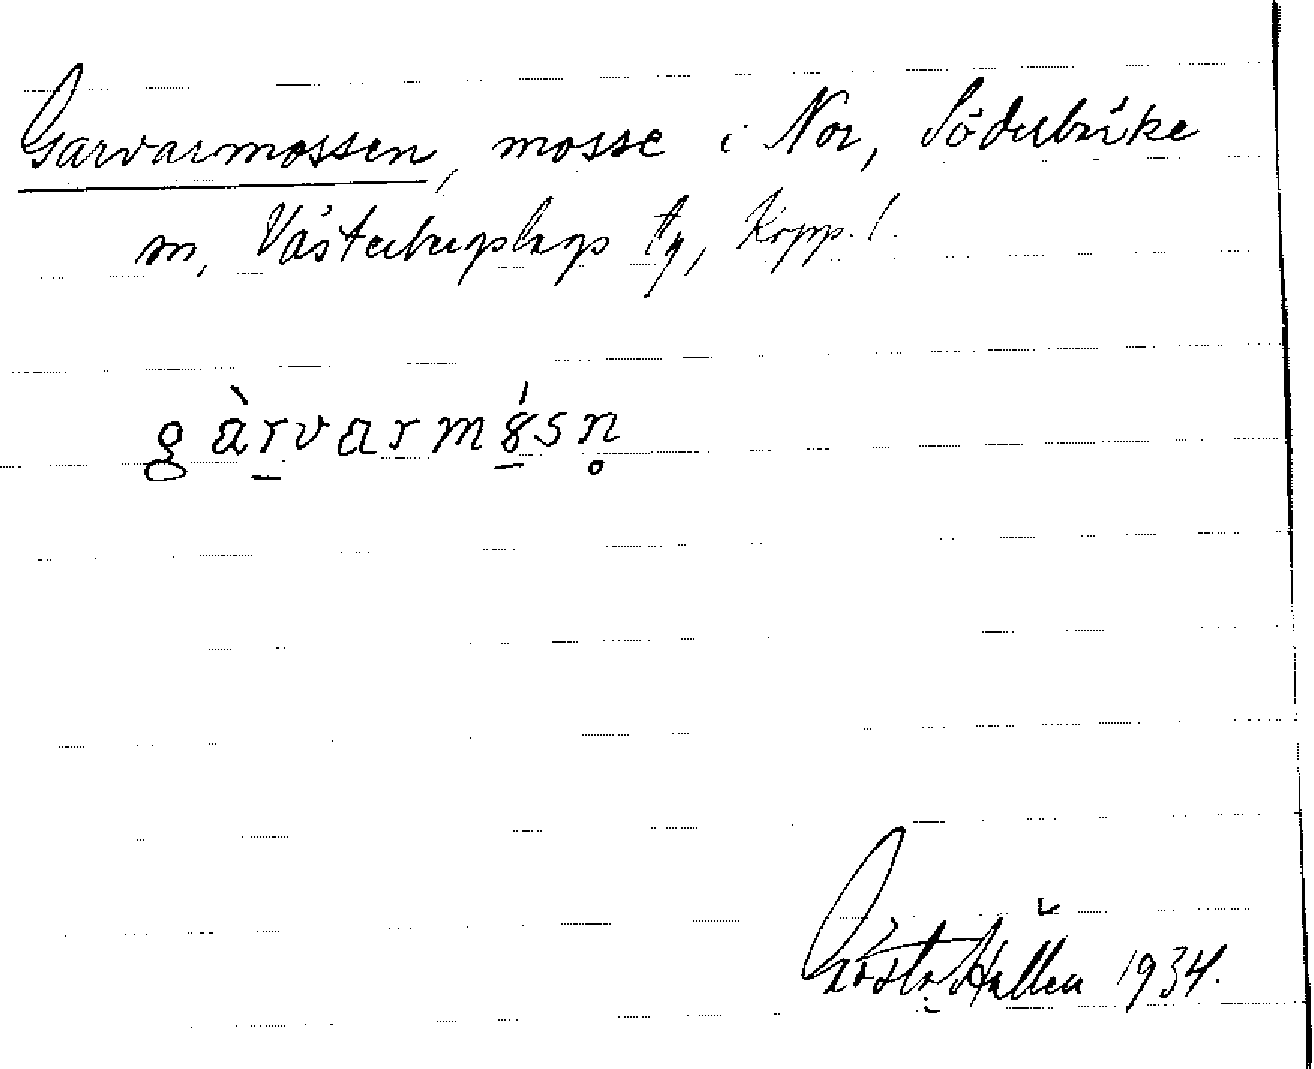 Garvarmossen, mosse i Nor, Söderbärke
sn, Västerbergslags tg, Kopp. l.
gàrvarmósn̥
Gösta Hallén 1934.